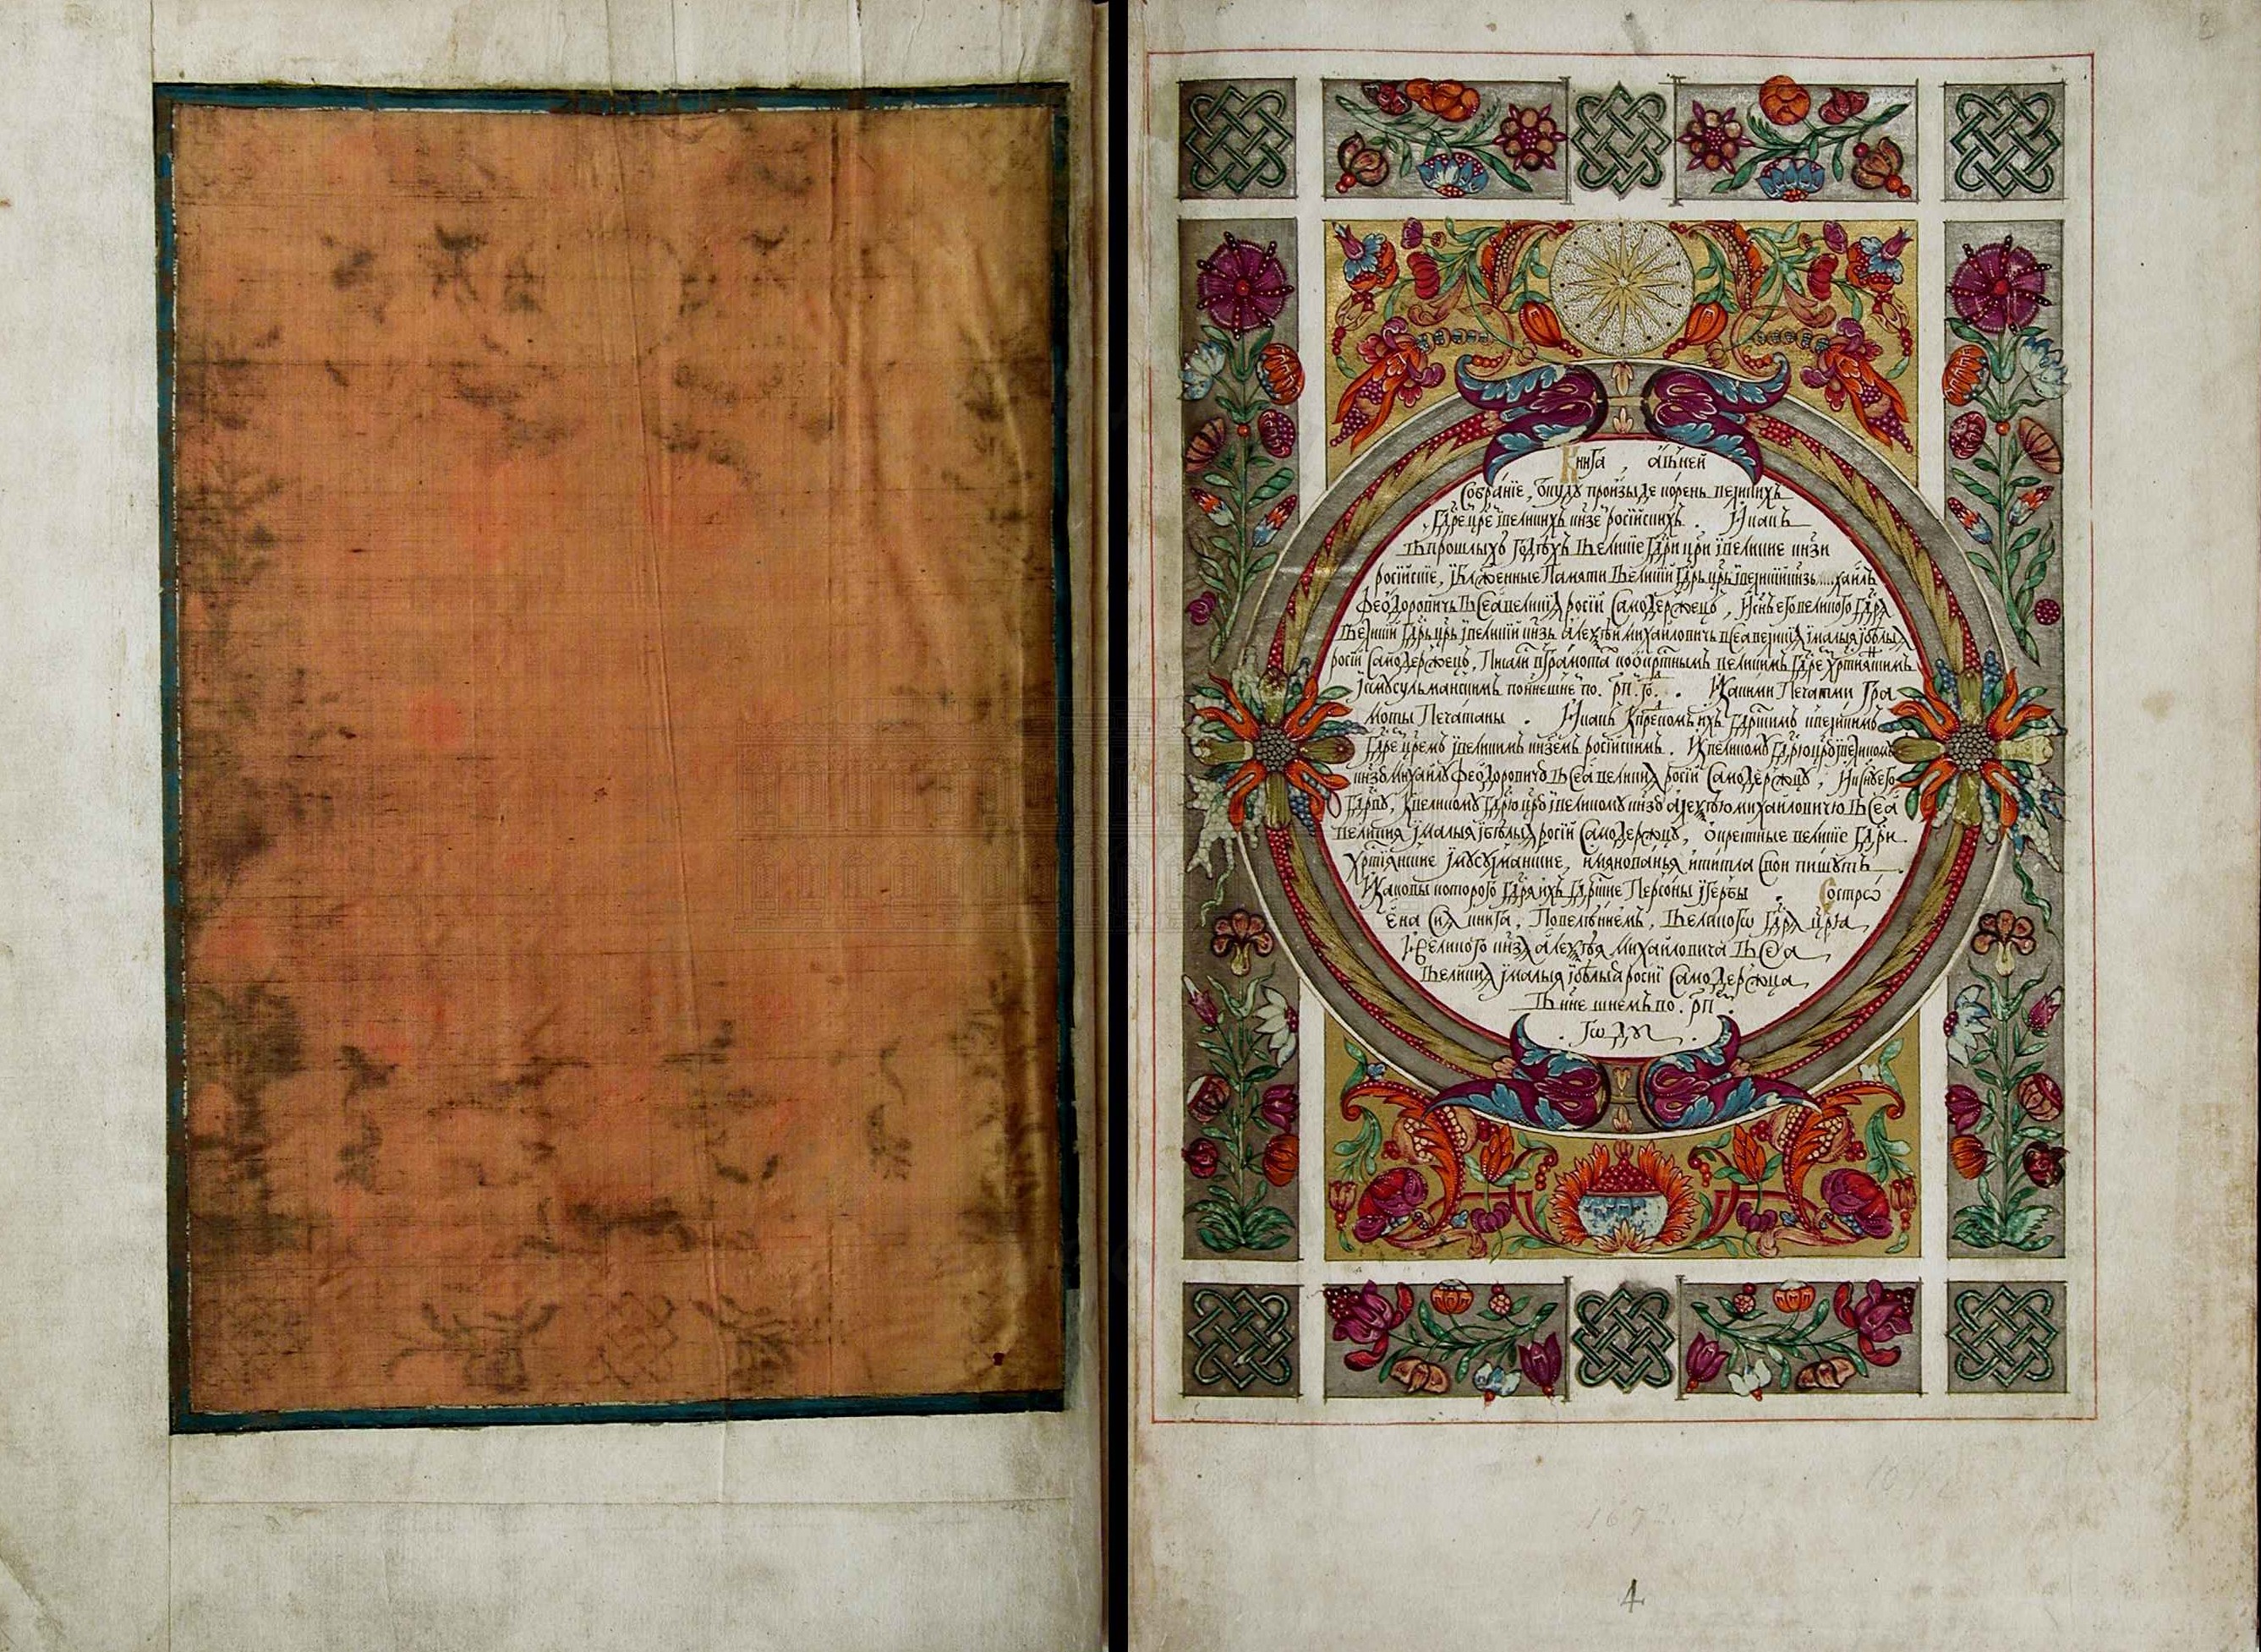 Книга, а въ ней
Собрание, ѿкуду произыде корень великихъ
Гдрей црей и великихъ кнзей російскихъ. И какъ
въ прошлыхъ годѣхъ великие Гдри цри и великие кнзи
російстіе, блаженные памяти великий Гдрь црь и великий кнзь хаилъ
Феодоровичь всеа великия росіи Самодержецъ, и снъ его великого Гдря
великий Гдрь црь и великий кнзь алеѯѣй михайловичь всеа великия и малыя и бѣлыя
росіи Самодержецъ, писали в грамотахъ к окрестнымъ великимъ Гдремъ хрстиянскимъ
и мусульманскимъ по ннешней по рп. го. И какими печатми гра
моты печатаны. И какъ к предкомъ ихъ Гдрскимъ к великимъ
Гдремъ цремъ и великимъ кнземъ російскимъ. И к великому Гдрю црю и великому
кнзю михаилу феодоровичу всеа великия росіи Самодержцу, и к сну его
Гдрву, к великому Гдрю црю и великому кнзю алеѯѣю михайловичю всеа
великия и малыя и бѣлыя росіи Самодержцу, окрестные великие Гдри
хрстиянские и мусулманские, имянованья и титла свои пишутъ
И каковы которого Гдря ихъ Гдрские персоны и гербы. Состро
ена сия книга, повелѣниемъ, великогѡ Гдря цря
и великого кнзя алеѯѣя михайловича всеа
великия и малыя и бѣлыя росіи Самодержца
в ннешнемъ по. рп
году.
1672
4